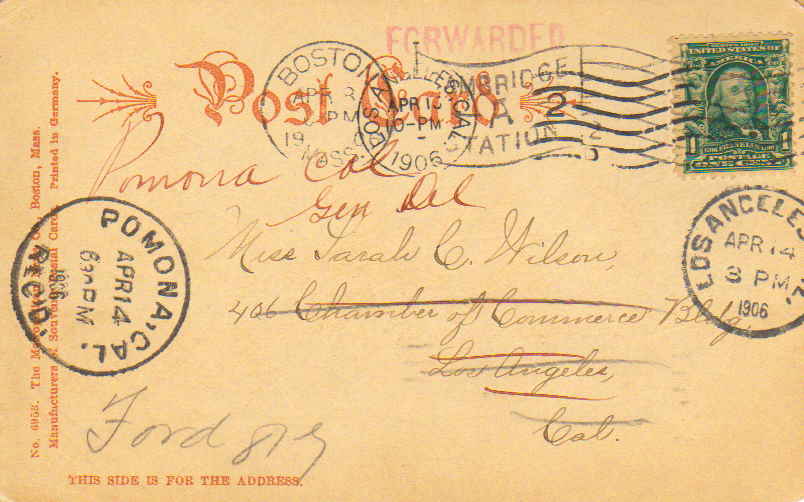 FORWARDED
Post Card
BOSTON
APR 8
PM
19
MASS.
LOS ANGELES, CAL.
APR 13
10-PM
1906
CAMBRIDGE
A
STATION
2
UNITED STATES OF
AMERICA
1
1
POSTAGE
Pomona Cal
Gen Del
Miss Sarah C. Wilson,
406 Chamber of Commerce Bldg,
Los Angeles,
Cal.
LOS ANGELES
APR 14
3 PM
1906
POMONA, CAL.
APR 14
630 PM
1906
REC'D.
Ford
No. 6958. The Co., Boston, Mass.
Manufacturers of Souvenir Postal Cards. Printed in Germany.
THIS SIDE IS FOR THE ADDRESS.